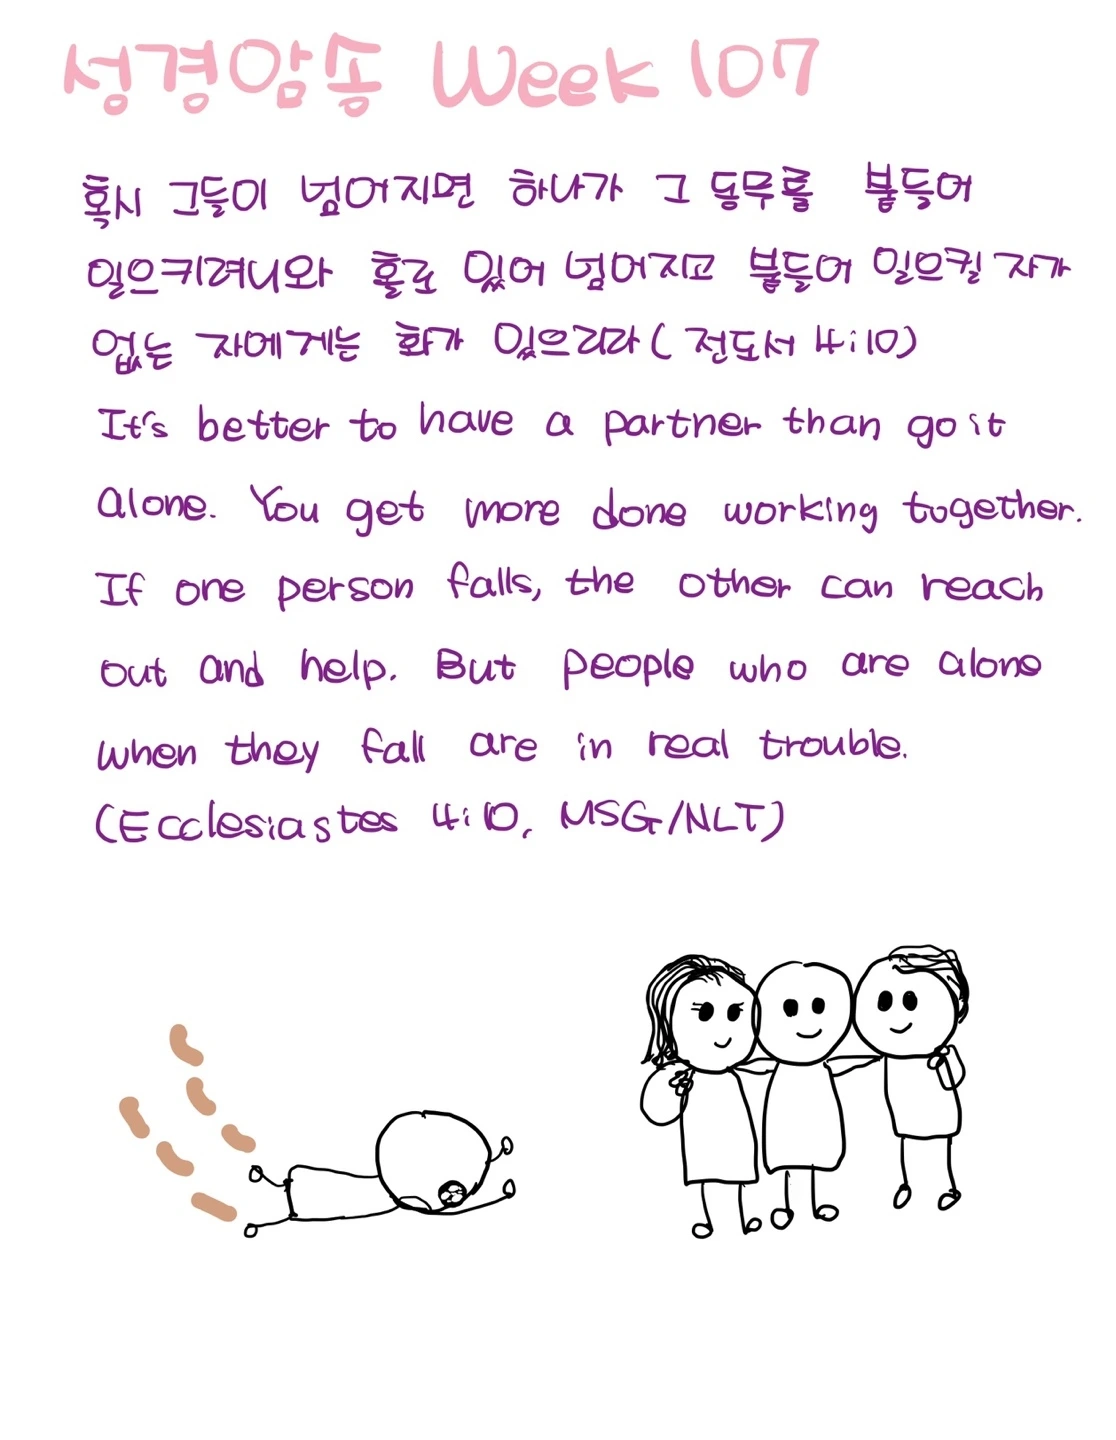 성경암송 Week 107
혹시 그들이 넘어지면 하나가 그 동무를 붙들어
일으키려니와 홀로 있어 넘어지고 붙들어 일으킬 자가
없는 자에게는 화가 있으리라 (전도서 4:10)
It's better to have a partner than go it
alone. You get more done working together.
If one person falls, the other can reach
out and help. But people who are alone
when they fall are in real trouble.
(Ecclesiastes 4:10, MSG/NLT)